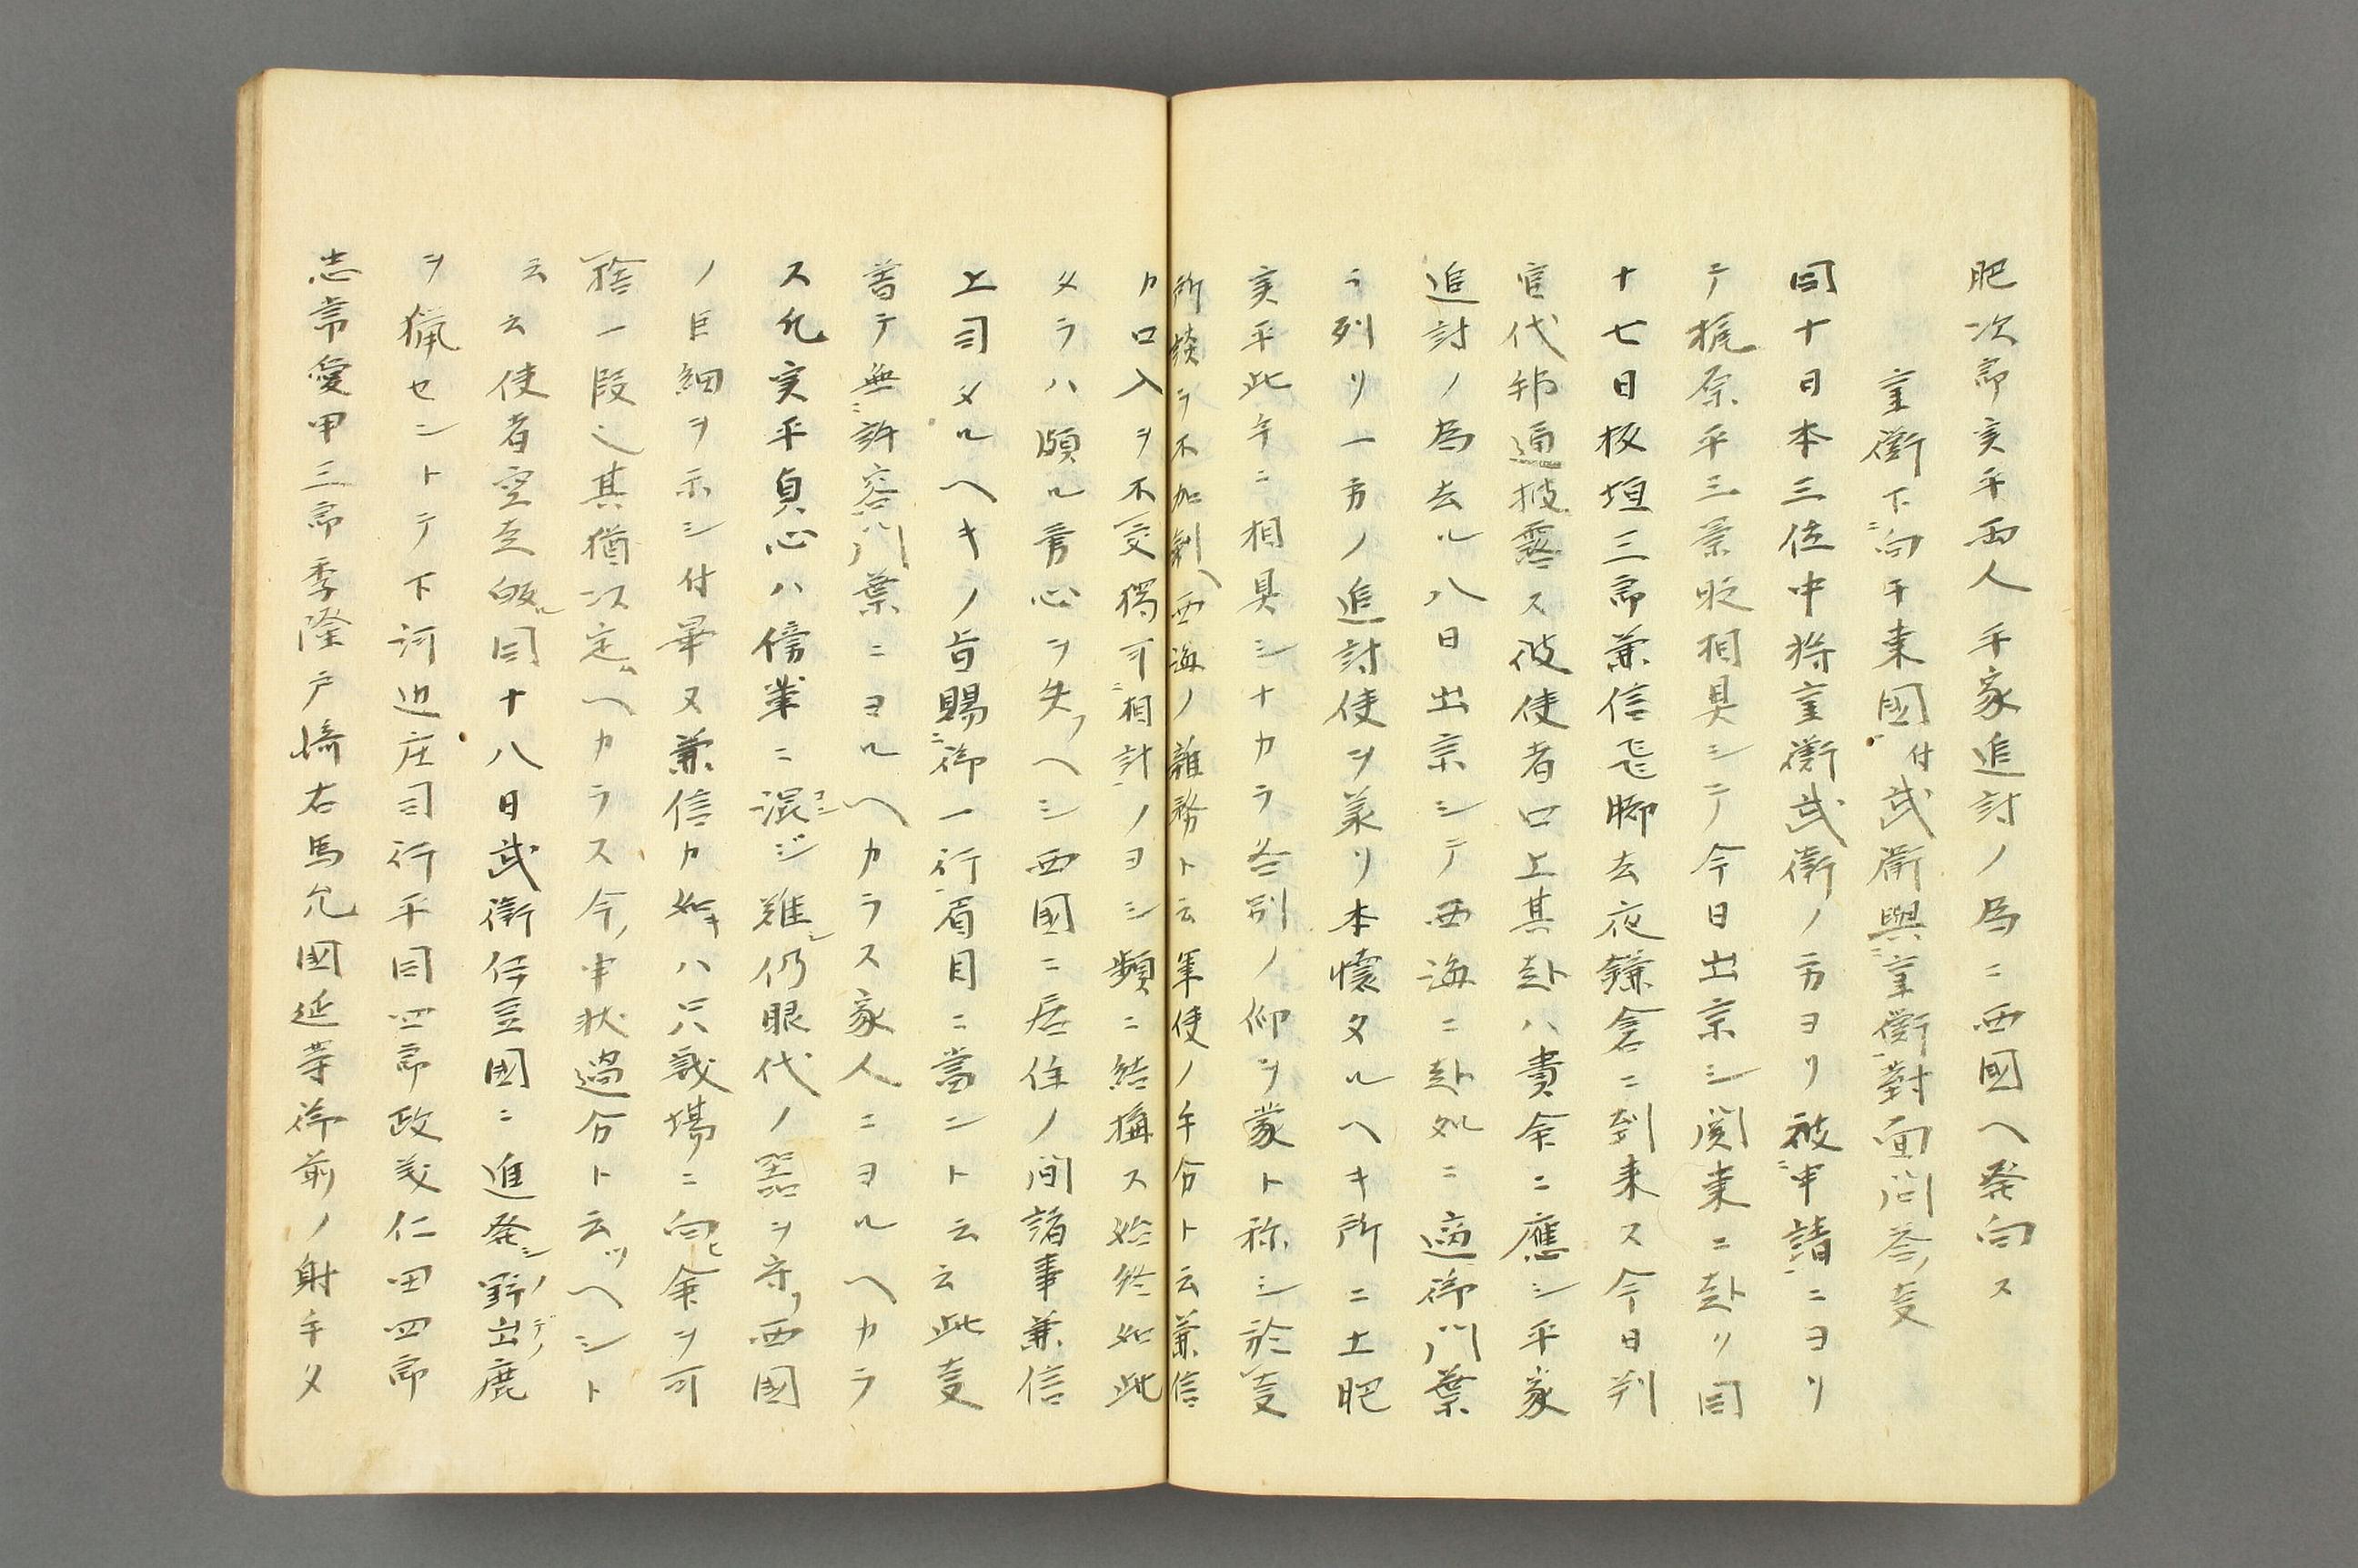 肥次郎実平両人平家追討ノ為ニ西國ヘ発向ス
重衡下向于東國付武衛與重衡對面問荅ノ叓
同十日本三位中将重衡武衛ノ方ヨリ被申請ニヨリ
テ梶原平三景时相具シテ今日出京シ関東ニ赴リ同
十七日板垣三郎兼信飛脚去夜鎌倉ニ到来ス今日判
官代邦通披露ス彼使者口上其赴ハ貴命ニ應シ平家
追討ノ為去ル八日出京シテ西海ニ赴処ニ適御門葉
ニ列リ一方ノ追討使ヲ美リ本懐タルヘキ所ニ土肥
実平此手ニ相具シナカラ各別ノ仰ヲ蒙ト称シ於叓
所談ラ不加剰ヘ西海ノ雑務ト云軍使ノ手分ト云兼信
カロ入ヲ不交獨可相計ノヨシ頻ニ結搆ス始終如此
タラハ頗ル勇心ヲ失フヘシ西國ニ居住ノ間諸事兼信
上司タルヘキノ旨賜御一行眉目ニ當ントムム此叓
曽テ無許容門葉ニヨルヘカラス家人ニヨルヘカラ
ス凡実平貞心ハ傍輩ニ混コンジ難シ仍眼代ノ器ヲ守リ西國
ノ巨細ヲ示シ付畢又兼信カ如キハ只戦場ニ向ヒ命ヲ可
捨一段也其猶次定ムヘカラス今ノ申状過分ト云ツヘシト
云云使者空走皈ル同十八日武衛伊豆國ニ進発シ野ノ出デノ鹿
ヲ猟セントテ下河辺庄司行平同四郎政義仁田四郎
忠常愛甲三郎季隆戸﨑右馬允國延等御前ノ射手タ